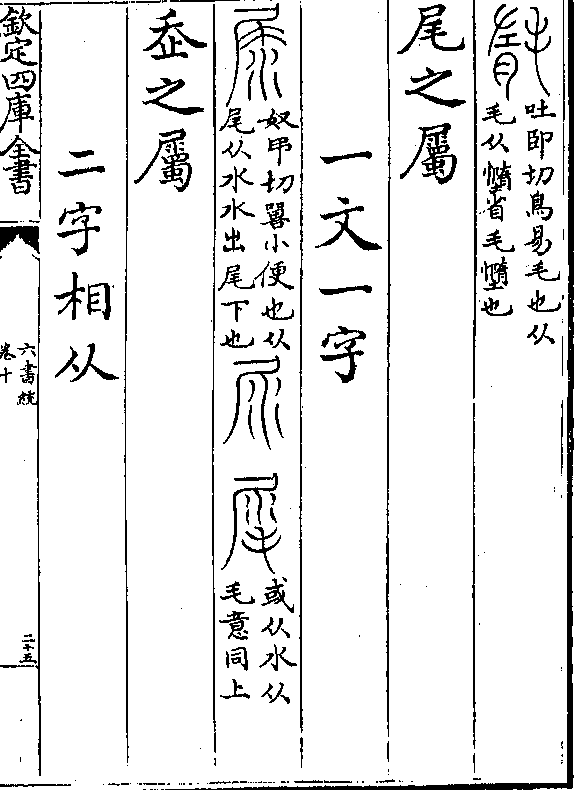 吐即切鳥易毛也从
毛从憜省毛憜也
尾之屬
一文一字
奴弔切畧小便也从
尾从水水出尾下也
或从水从
毛意同上
之屬
二字相从
欽定四庫全書
六書統
卷十
二十五